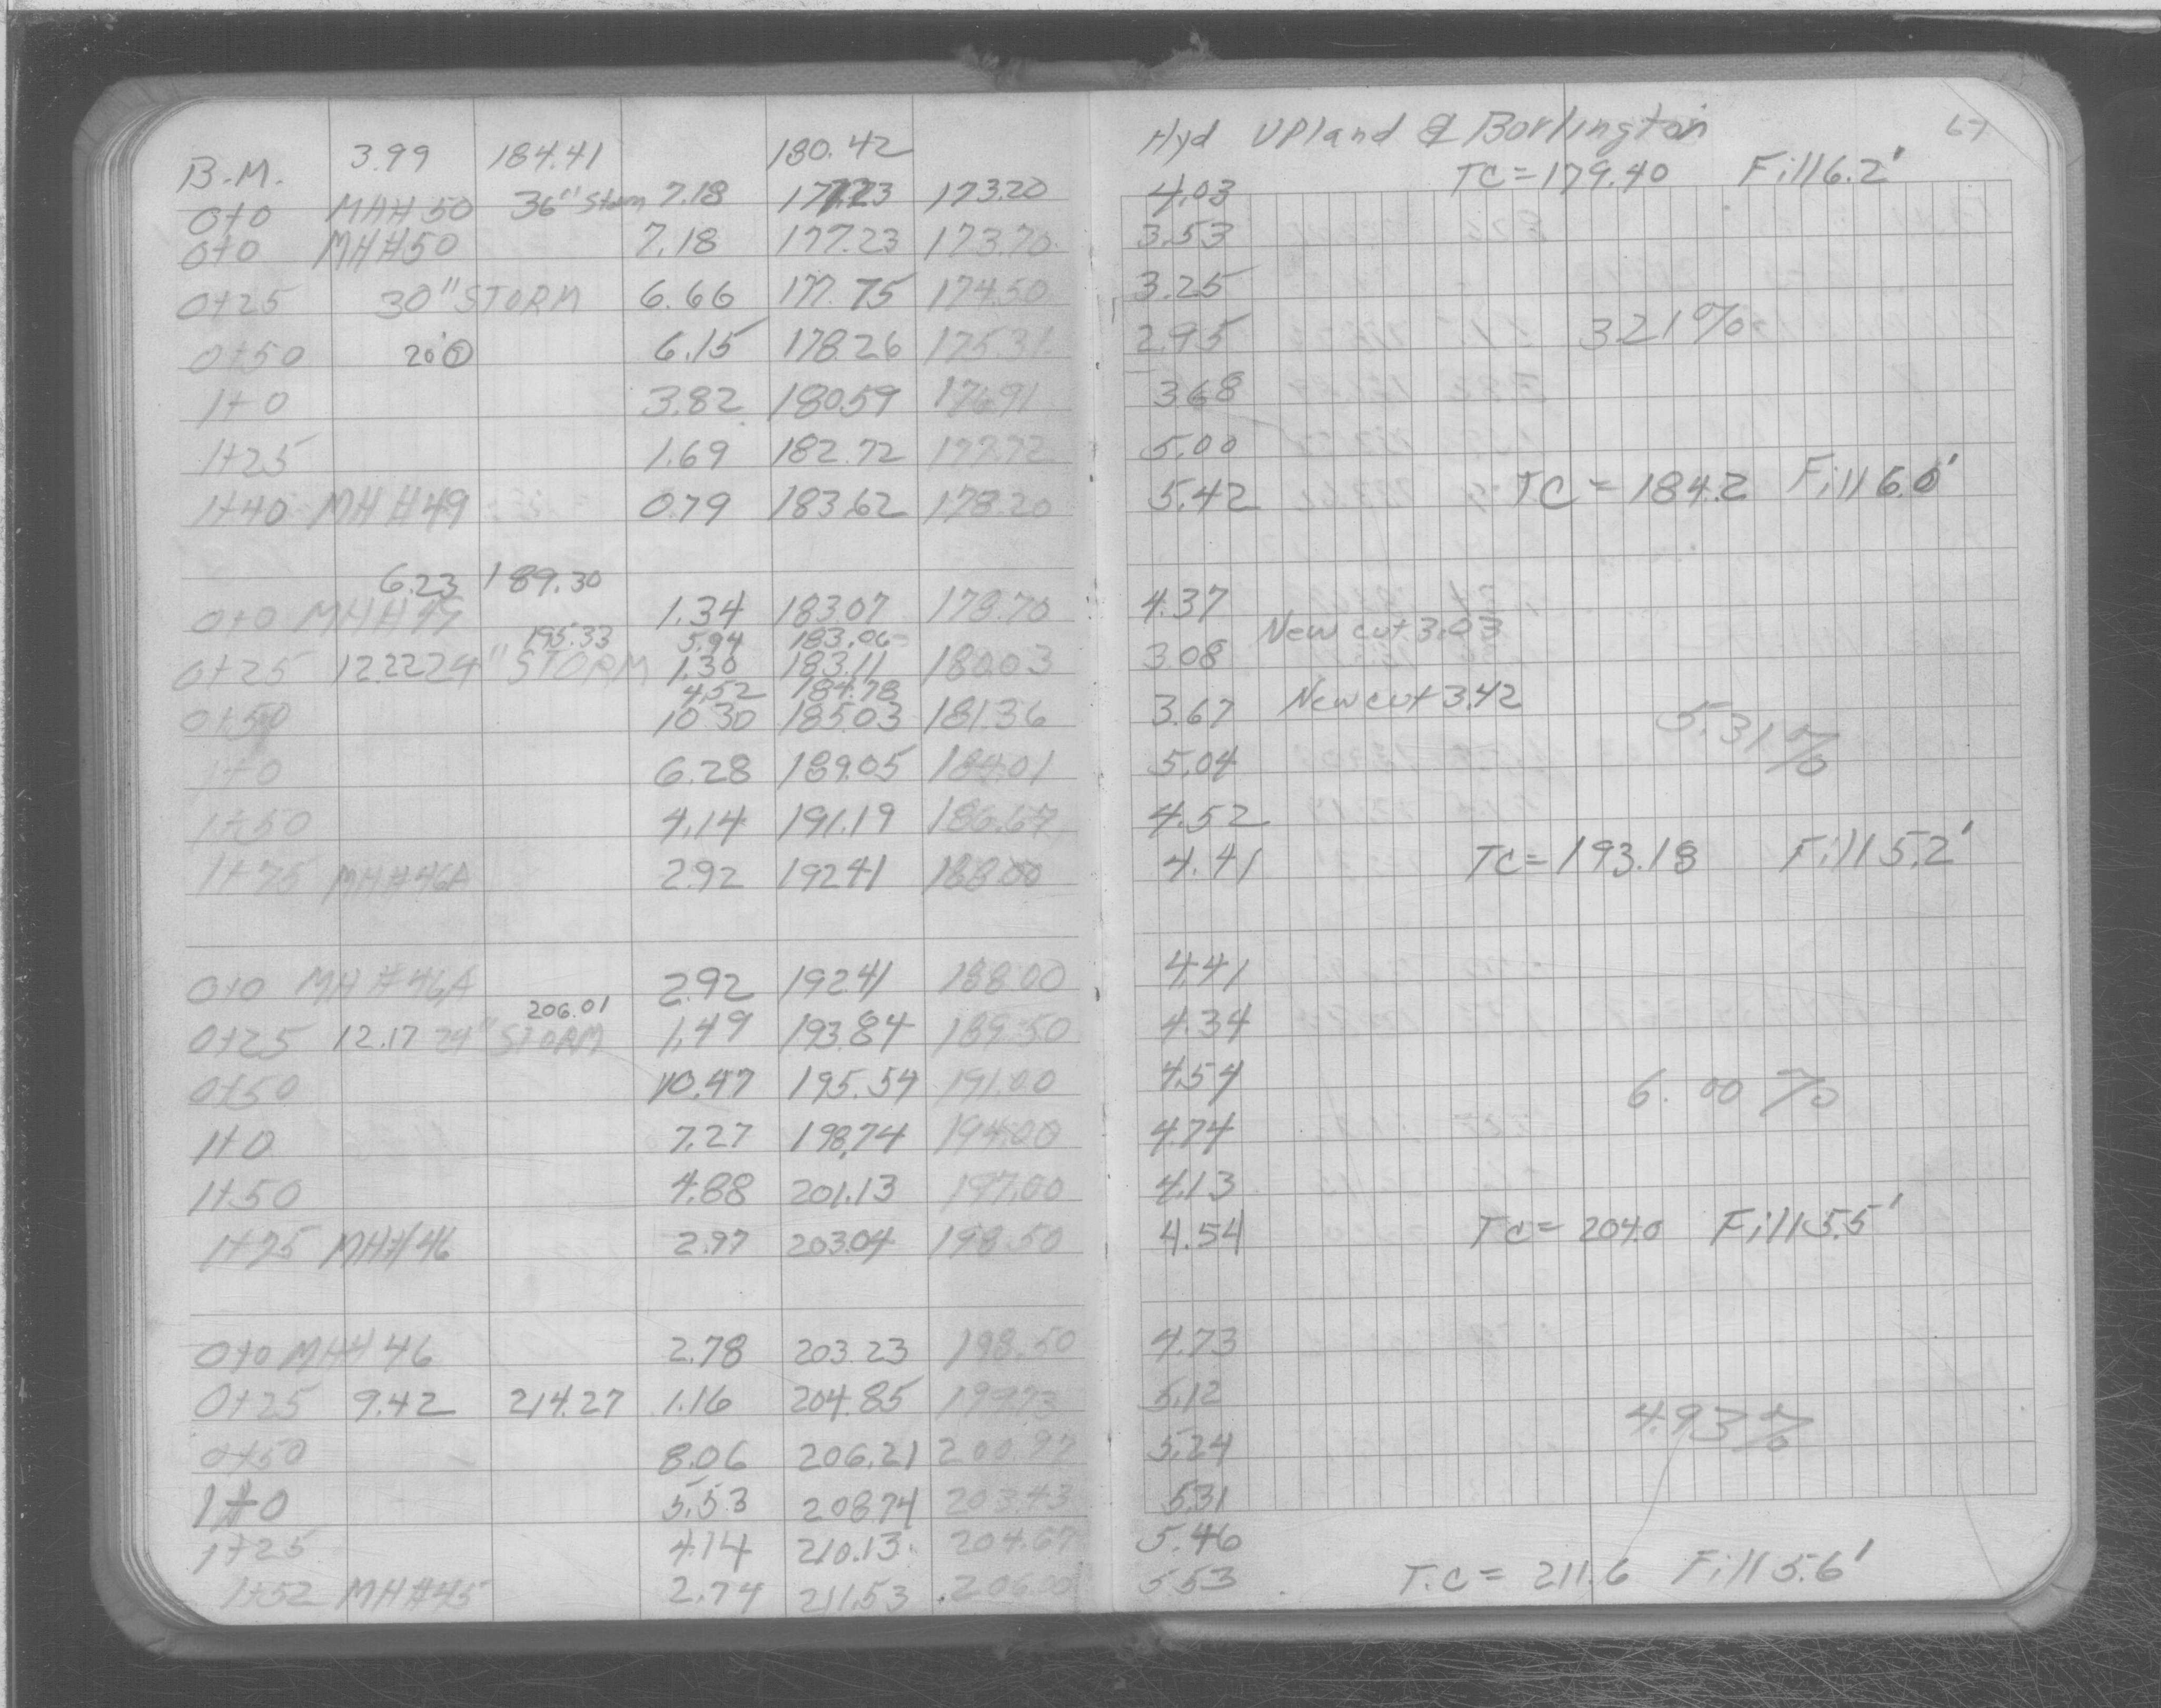 B.M. 3.99 184.41 180.42 Hyd UPland & Borlington 67
TC = 179.40 Fill 6.2'
0+0 MH# 50 36" Storm 7.18 177.23 173.20 4.03
0+0 MH#50 7.18 177.23 173.70 3.53
0+25 30" STORM 6.66 177.75 174.50 3.25
0+50 20' 6.15 178.26 175.31 2.95 3.21%
1+0 3.82 180.59 176.91 3.68
1+25 1.69 182.72 177.72 5.00
1+40 MH #49 0.79 183.62 178.20 5.42 TC = 184.2 Fill 6.0'
6.23 189.30
0+0 MH# 1.34 183.07 178.70 4.37
195.33 5.94 183.06 New cut 3.03
0+25 12.22 24" STORM 1.30 183.11 180.03 3.08
4.52 184.78 New cut 3.42
0+50 10.30 185.03 181.36 3.67 5.31%
1+0 6.28 189.05 184.01 5.04
1+50 4.14 191.19 186.67 4.52
1+75 MH#46A 2.92 192.41 188.00 4.41 TC = 193.18 Fill 5.2'
0+0 MH #46A 2.92 192.41 188.00 4.41
206.01
0+25 12.17 24" STORM 1.49 193.84 189.50 4.34
0+50 10.47 195.54 191.00 4.54 6.00%
1+0 7.27 198.74 194.00 4.74
1+50 4.88 201.13 197.00 4.13
1+75 MH#46 2.97 203.04 198.50 4.54 TC = 204.0 Fill 5.5'
0+0 MH# 46 2.78 203.23 198.50 4.73
0+25 9.42 214.27 1.16 204.85 199.73 5.12
0+50 8.06 206.21 200.97 5.24 4.93%
1+0 5.53 208.74 203.43 5.31
1+25 4.14 210.13 204.67 5.46
1+52 MH#45 2.74 211.53 206.00 5.53 T.C = 211.6 Fill 5.6'